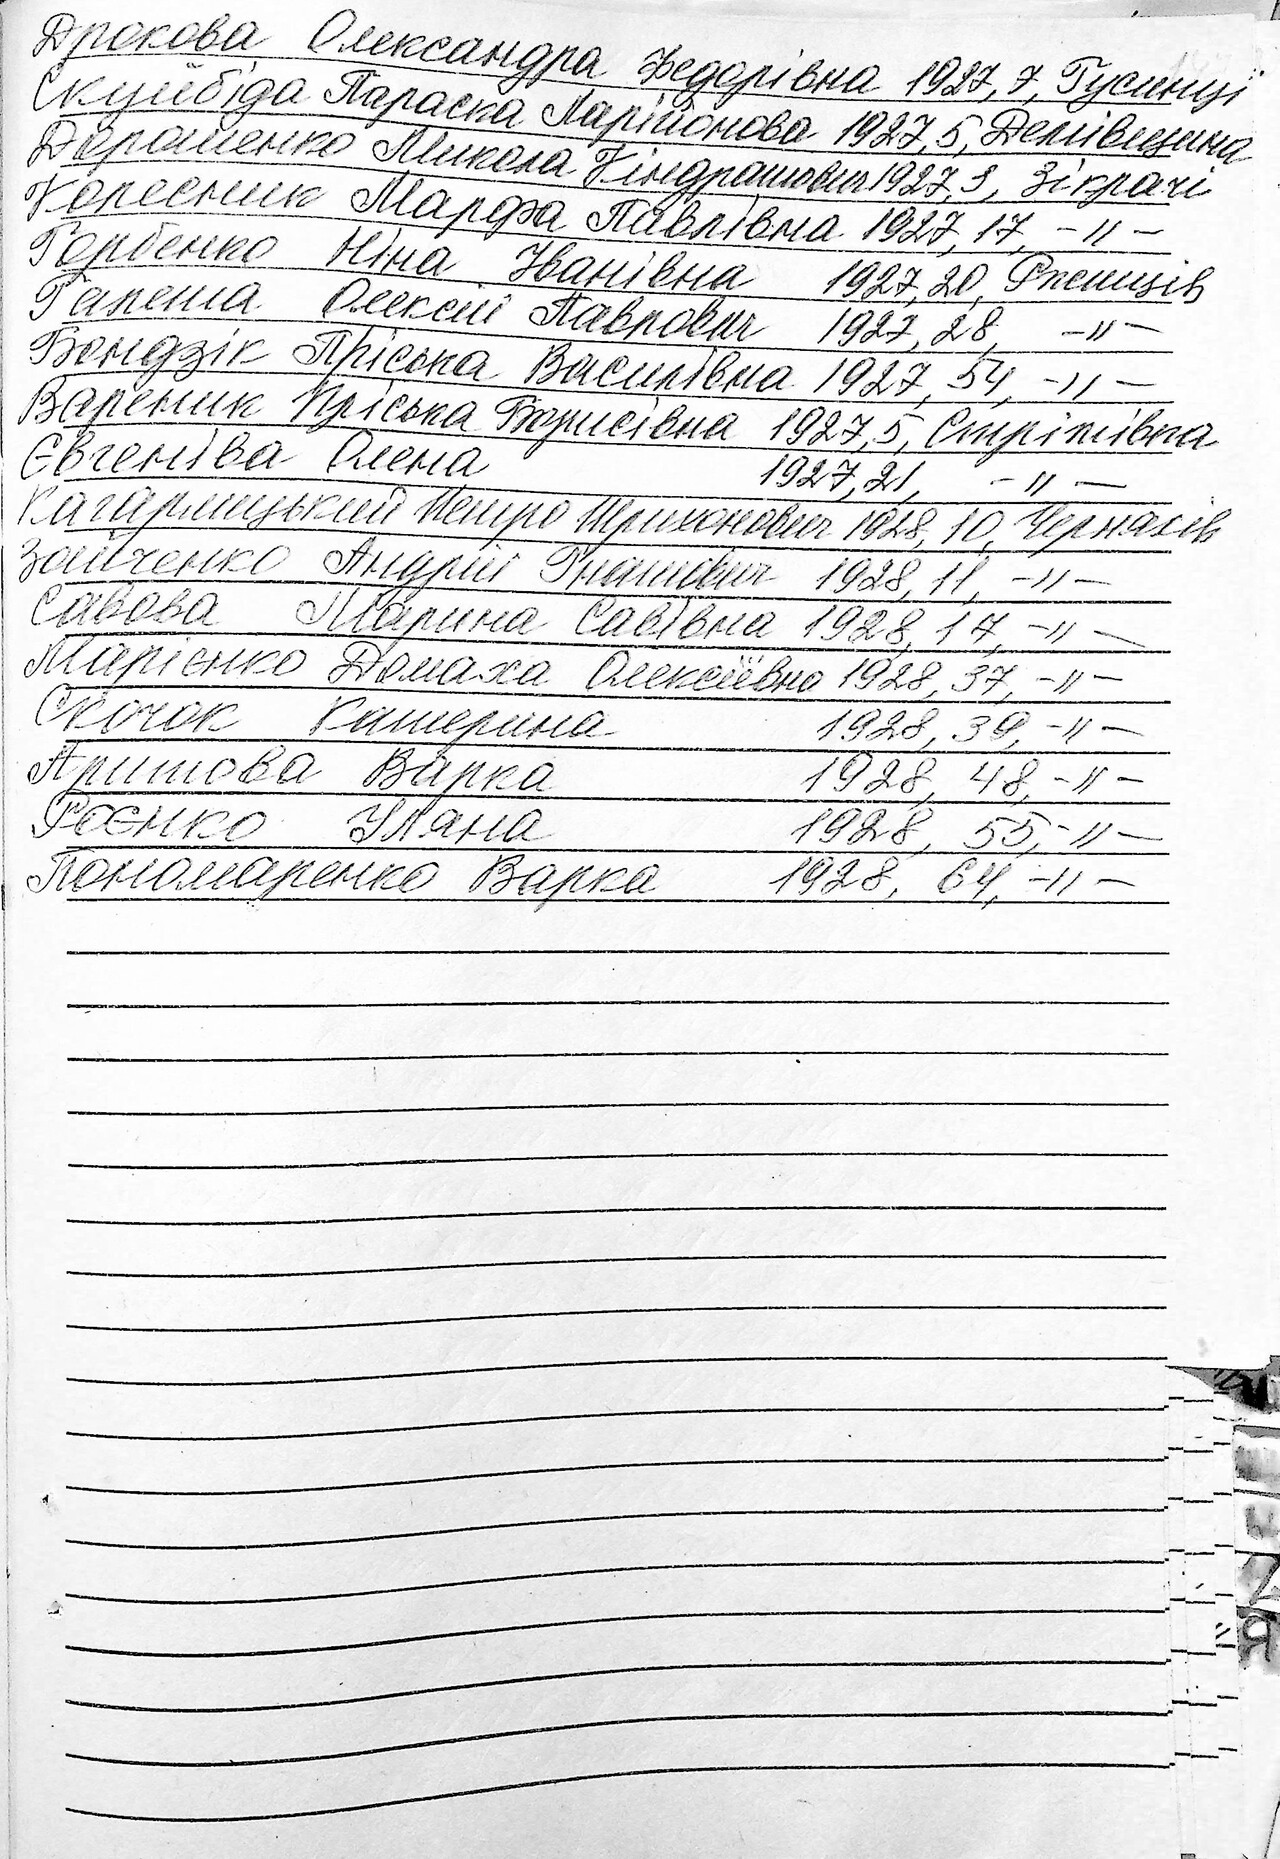 Дрокова Олександра Федорівна 1927, 7, Гусинці
Скуйбіда Параска Ларіонова 1927, 5, Демівщина
Дорошенко Микола Кіндратович 1927, 3, Зікрачі
Колесник Марфа Павлівна 1927, 17, -"-
Горбенко Ніна Іванівна 1927, 20, Ржищів
Галета Олексій Павлович 1927, 28, -"-
Бондзік Пріська Василівна 1927, 54, -"-
Вареник Пріська Борисівна 1927, 5, Стрітівка
Євгеніва Олена 1927, 21, -"-
Кагарлицький Петро Трихонович 1928, 10, Черняхів
Зайченко Андрій Гнатович 1928, 11, -"-
Савова Марина Савівна 1928, 17, -"-
Марієнко Домаха Олексіївна 1928, 37, -"-
Скочок Катерина 1928, 39, -"-
Притова Варка 1928, 48, -"-
Роєнко Уляна 1928, 55, -"-
Пономаренко Варка 1928, 64, -"-